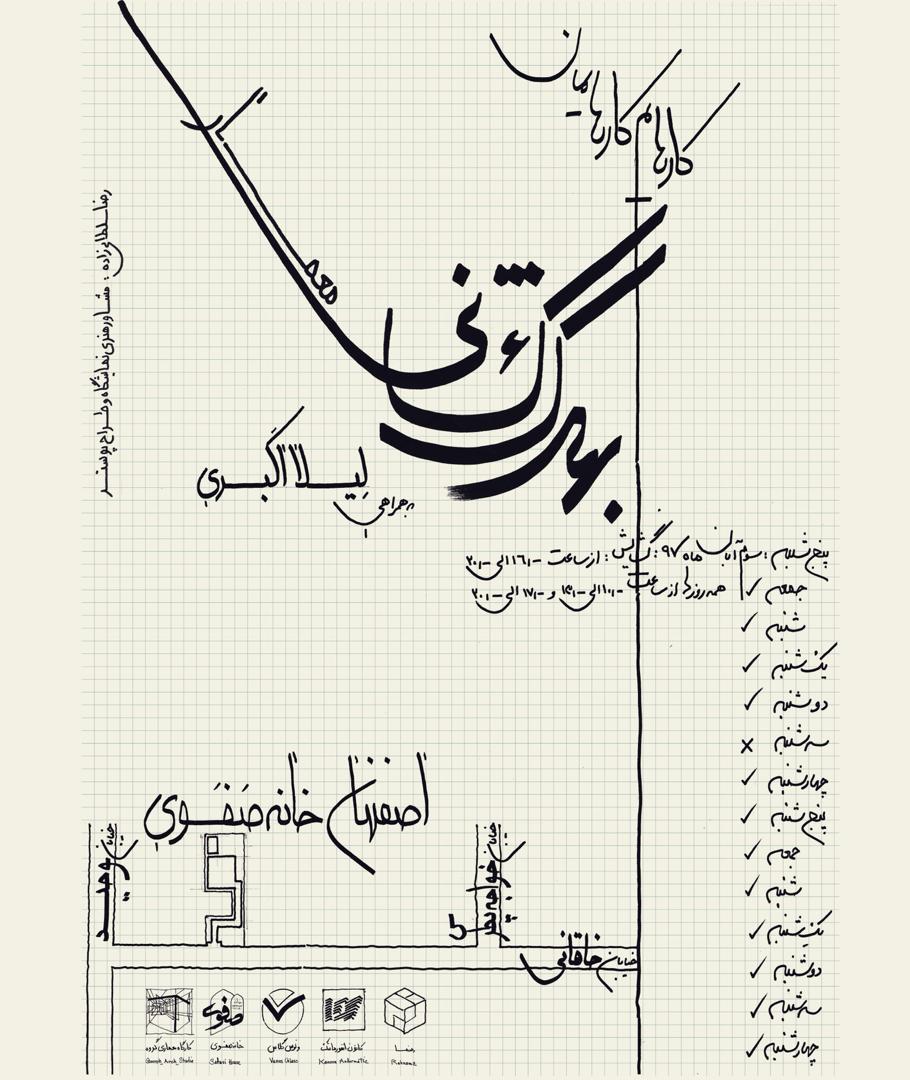 کارهایم کارهایمان
بهادر کشانی
معمار
به همراهی
لیلا اکبری
رضا سلطانی‌زاده : مشاور هنری نمایشگاه و طراح پوستر
پنج‌شنبه : سوم آبان ماه ۹۷ : گشایش : از ساعت ۱۶:۰۰ الی ۲۰:۰۰
جمعه ✓ همه روزه از ساعت ۱۰:۰۰ الی ۱۳:۰۰ و ۱۷:۰۰ الی ۲۰:۰۰
شنبه ✓
یک‌شنبه ✓
دوشنبه ✓
سه‌شنبه x
چهارشنبه ✓
پنج‌شنبه ✓
جمعه ✓
شنبه ✓
یک‌شنبه ✓
دوشنبه ✓
سه‌شنبه ✓
چهارشنبه ✓
اصفهان خانه صفوی
خیابان توحید
خیابان خواجه پطرس
خیابان خاقانی
صفوی
کارگاه معماری گروه
خانه صفوی
ونوس گلاس
کانون اتوماتیک
رهنما
Goroh_Arch_Studio
Safavi House
Venus Glass
Kanoon Automatic
Rahnama